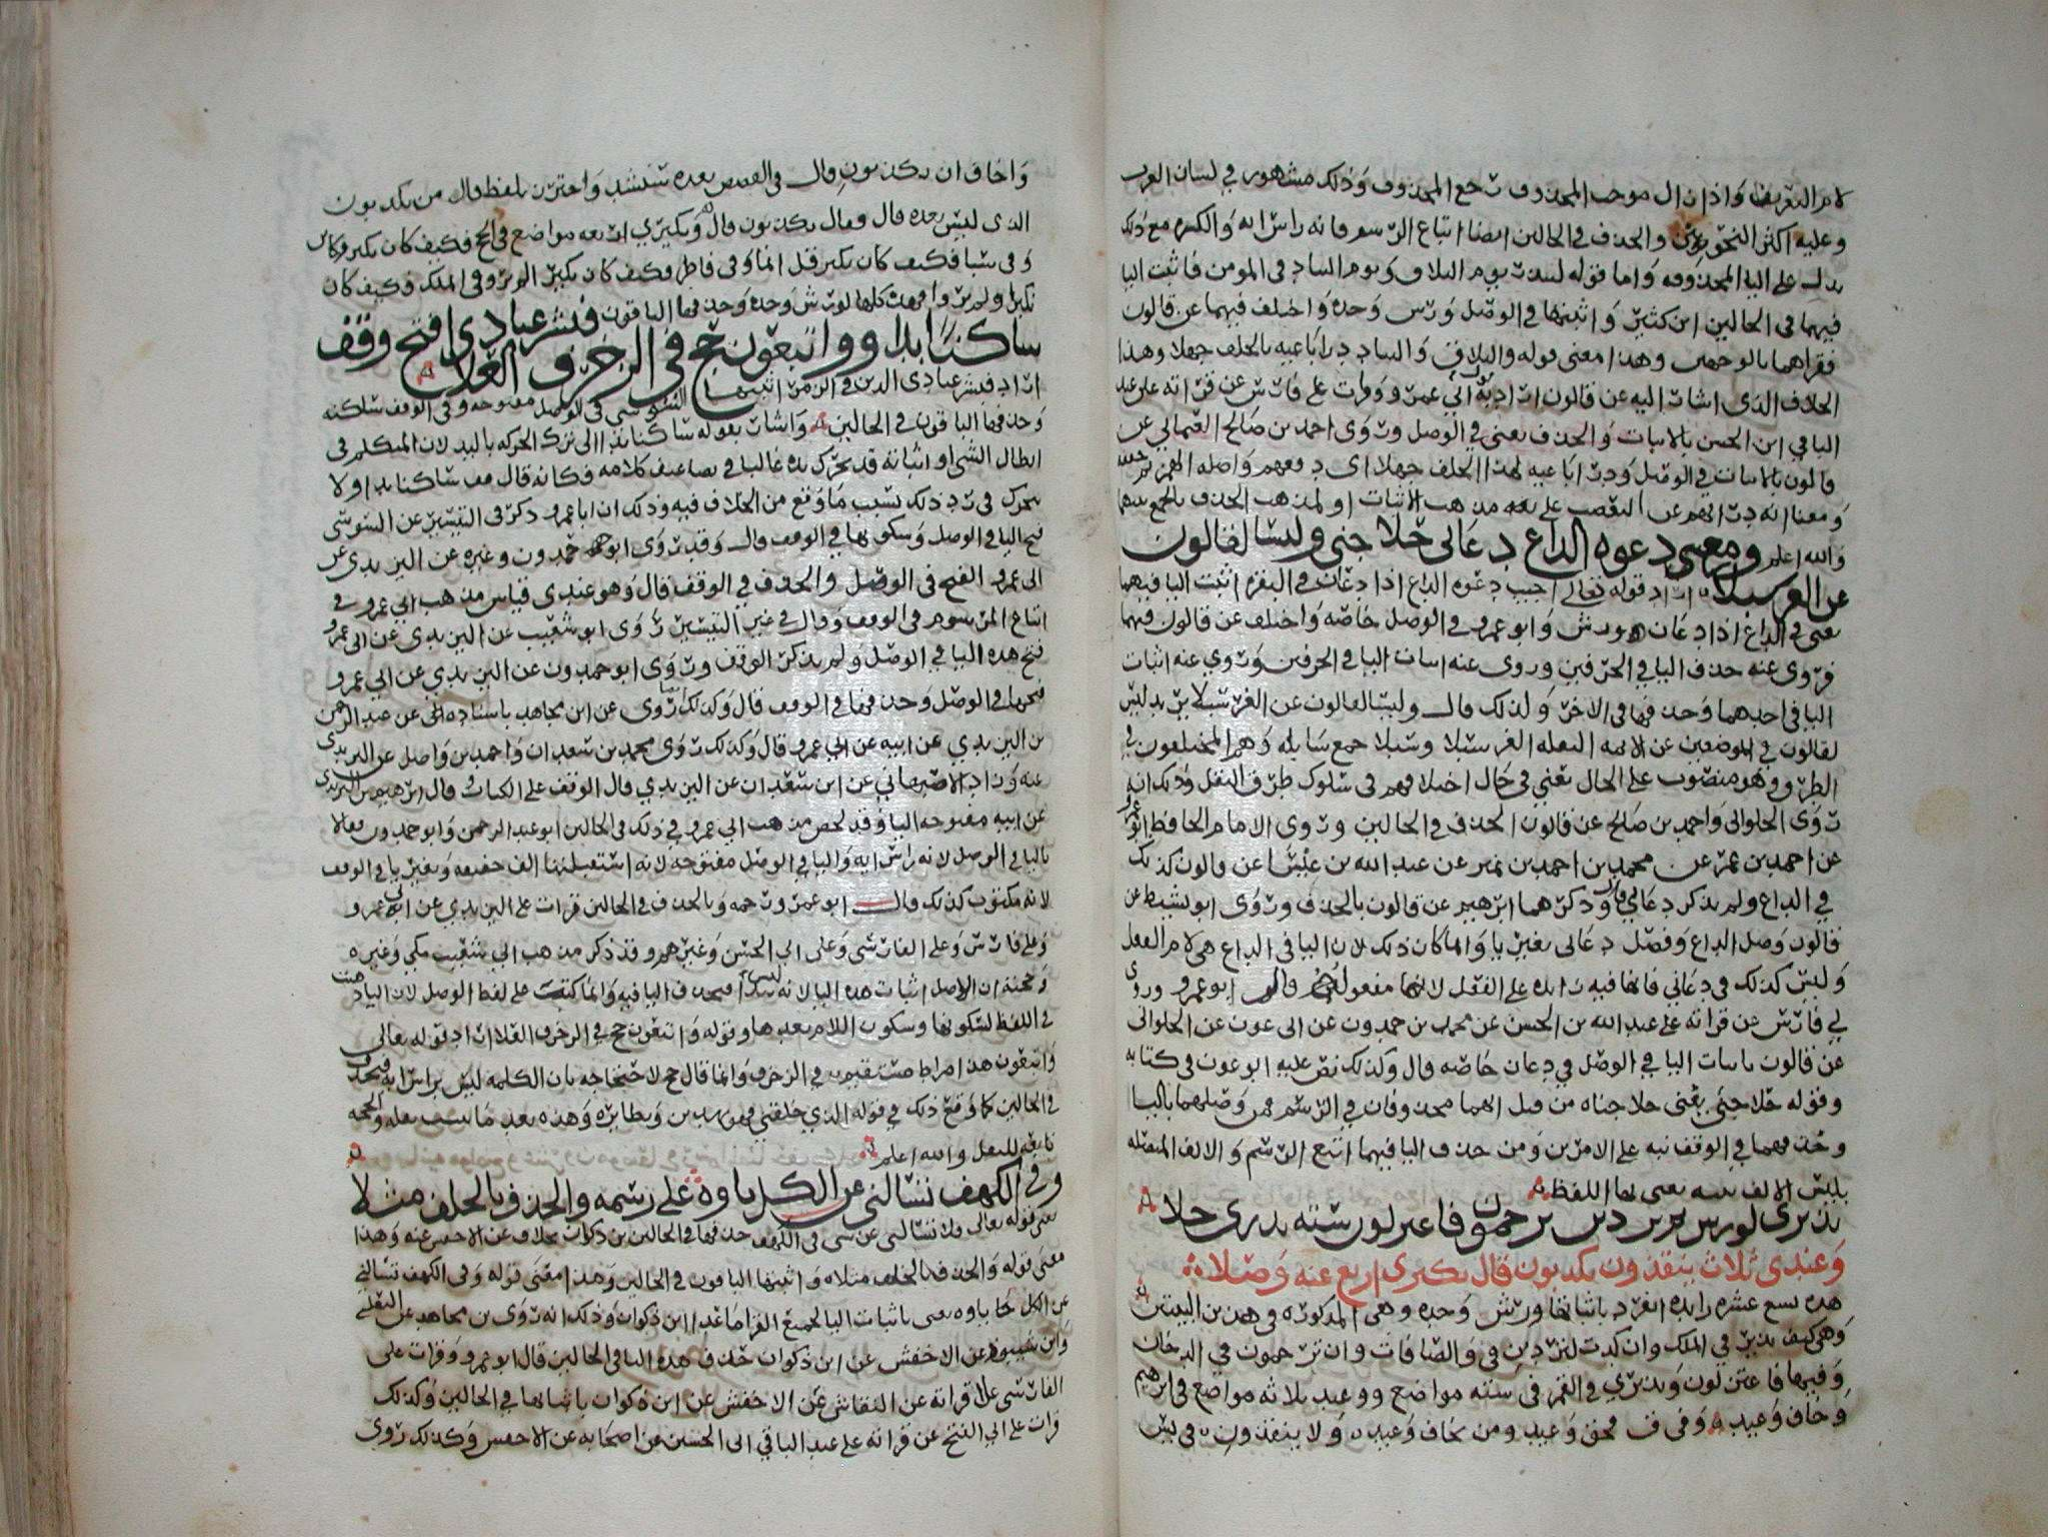 لام التعريف واذا زال موجب المحذوف رجع المحذوف وذلك مشهور في لسان العرب
وعليه اكثر النحويين والحذف في الحالين ايضا اتباع الرسم فانه راس ايه والكسره مع ذلك
يدل على اليا المحذوفه واما قوله لينذر يوم التلاق ويوم التناد في المومن فاثبت اليا
فيهما في الحالين ابن كثير واثبتها في الوصل ورش وحده واختلف فيهما عن قالون
فقراهما بالوجهين وهذا معنى قوله والتلاق والتناد درا باغيه بالخلف جهلا وهذا
الخلاف الذي اشار اليه عن قالون اراد به ابي عمرو وقرات على فارس عن قراته على عبد
الباقي ابن الحسن بالاثبات والحذف يعني في الوصل وروى احمد بن صالح العثماني عن
قالون بالاثبات في الوصل ودرا باغيه لهذا الخلف جهلا اي دفعهم واصله الهمز
ومعناه انه دراهم عن التعصب على بعه مذهب الاثبات او لمذهب الحذف بالجمع بينهما
والله اعلم ومع دعوه الداع دعاني حلا جنى وليسا لقالون
عن الغر سبلا اراد قوله تعالى اجيب دعوه الداع اذا دعان في البقره اثبت اليا فيهما
يعني في الداع اذا دعان ورش وابو عمرو في الوصل خاصه واختلف عن قالون فيهما
فروى عنه حذف اليا في الحرفين وروى عنه اثبات اليا في الحرفين وروي عنه اثبات
اليا في احدهما وحذفها في الاخر ولذلك قال وليسا لقالون عن الغر سبلا يريد ليس
لقالون في الموضعين عن الائمه النقله الغر سبلا وسبلا جمع سابله وهم المختلفون في
الطرق وهو منصوب على الحال يعني في حال اختلافهم في سلوك طرق النقل وذلك انه
روى الحلواني واحمد بن صالح عن قالون الحذف في الحالين وروى الامام الحافظ ابو عمرو
عن احمد بن عمر عن محمد بن احمد بن نمير عن عبد الله بن عيسى عن قالون كذلك
في الداع ولم يذكر دعاني وذكرهما ابرهيم عن قالون بالحذف وروى ابو نشيط عن
قالون وصل الداع وفصل دعاني بغير يا وانما كان ذلك لان اليا في الداع هي لام الفعل
وليس كذلك في دعاني فانها فيه زايده على الفعل لانها مفعوله قال ابو عمرو وروى
لي فارس عن قراته على عبد الله بن الحسن عن محمد بن حمدون عن ابي عون عن الحلواني
عن قالون باثبات اليا في الوصل في دعان خاصه قال وكذلك نص عليه ابو عون في كتابه
وقوله حلا جنى يعني حلا جناه من قبل انهما محذوفان في الرسم فمن وصلهما باليا
وحذفهما في الوقف نبه على الامرين ومن حذف اليا فيهما اتبع الرسم والالف المتصله
بليس الالف تثنيه يعني بها اللفظ
نذيري لورش ثم تردين ترجمون فاعتزلون سته نذري جلا
وعيدي ثلاث ينقذون يكذبون قال نكيري اربع عنه وصلا
هذه تسع عشره زايده انفرد باثباتها ورش وحده وهي المذكوره في هذين البيتين
وهي كيف نذير في الملك وان كدت لتردين في والصافات وان ترجمون في الدخان
وفيها فاعتزلون ونذري في القمر في سته مواضع ووعيد ثلاثه مواضع في ابرهيم
وخاف وعيد وفي ق فحق وعيد ومن يخاف وعيد ولا ينقذون في يس
واخاف ان يكذبون قال في القصص بعده سنشد واحترز بلفظ قال من يكذبون
الذي ليس بعده قال فقال يكذبون قال ونكيري اربعه مواضع في الحج فكيف كان نكير فكاين
وفي سبا فكيف كان نكير قل انما وفي فاطر فكيف كان نكير الم تر وفي الملك فكيف كان
نكير اولم يروا فهذه كلها لورش وحده وحذفها الباقون فبشر عبادي افتح وقف
ساكنا يدا وواتبعون حج في الزخرف العلا
اراد فبشر عبادي الذين في الزمر اثبتها السوسي في الوصل مفتوحه وفي الوقف ساكنه
وحذفها الباقون في الحالين واشار بقوله ساكنا يدا الى ترك الحركه باليد لان المتكلم في
ابطال الشي او اثباته قد يحرك يده غالبا في تضاعيف كلامه فكانه قال قف ساكنا يدا ولا
تحرك في رد ذلك بسبب ما وقع من الخلاف فيه وذلك ان ابا عمرو ذكر في التيسير عن السوسي
فتح اليا في الوصل وسكونها في الوقف قال وقد روى ابو حمدون وغيره عن اليزيدي عن
ابي عمرو الفتح في الوصل والحذف في الوقف قال وهو عندي قياس مذهب ابي عمرو في
اتباع المرسوم في الوقف وقال في غير التيسير روى ابو شعيب عن اليزيدي عن ابي عمرو
فتح هذه اليا في الوصل ولم يذكر الوقف وروى ابو حمدون عن اليزيدي عن ابي عمرو
فتحها في الوصل وحذفها في الوقف قال وكذلك روى ايضا عن ابن مجاهد باسناده الى عن عبد الرحمن
بن اليزيدي عن ابيه عن ابي عمرو قال وكذلك روى محمد بن سعدان واحمد بن واصل عن اليزيدي
عنه وزاد الاصبهاني عن ابن سعدان عن اليزيدي قال الوقف على الكتاب قال ابرهيم بن اليزيدي
عن ابيه مفتوحه اليا وقد لخص مذهب ابي عمرو في ذلك في الحالين ابو عبد الرحمن وابو حمدون فقالا
باليا في الوصل لانه راس ايه واليا في الوصل مفتوحه لانه استقبلتها الف خفيفه وبغير يا في الوقف
لانه مكتوب كذلك قال ابو عمرو رحمه وبالحذف في الحالين قرات على اليزيدي عن ابي عمرو
وعلى فارس وعلى الفارسي وعلى ابي الحسن وغيرهم وقد ذكر مذهب ابي شعيب مكي وغيره
وحجته ان الاصل اثبات هذه اليا لانه ليس فيحذف اليا فيه وانما كتبت على لفظ الوصل لان اليا ذهبت
في اللفظ لسكونها وسكون اللام بعدها وقوله واتبعون حج في الزخرف العلا اراد قوله تعالى
واتبعون هذا صراط مستقيم في الزخرف وانما قال حج لاحتجاجه بان الكلمه ليس براس ايه فيحذف
في الحالين كما وقع ذلك في قوله الذي خلقني فهو يهدين ونظايره وهذه بعد ما ثبت نقله والحجه
تابعه للنقل والله اعلم
وفي الكهف تسالني عن الكل ياوه على رسمه والحذف بالخلف مثلا
يعني قوله تعالى فلا تسالني عن شي في الكهف حذفها في الحالين بن ذكوان بخلاف عن الاخفش عنه وهذا
معنى قوله والحذف بالخلف مثلا واثبتها الباقون في الحالين وهذا معنى قوله وفي الكهف تسالني
عن الكل ياوه يعني باثبات اليا لجميع القرا ما عدا ابن ذكوان وذلك انه روى بن مجاهد عن التغلبي
وابن شنبوذ عن الاخفش عن ابن ذكوان حذف هذه اليا في الحالين قال ابو عمرو وقرات على
الفارسي على قراته عن النقاش عن الاخفش عن ابن ذكوان باثباتها في الحالين وكذلك
قرات على ابي الفتح عن قراته على عبد الباقي ابي الحسين عن اصحابه عن الاخفش وكذلك روى